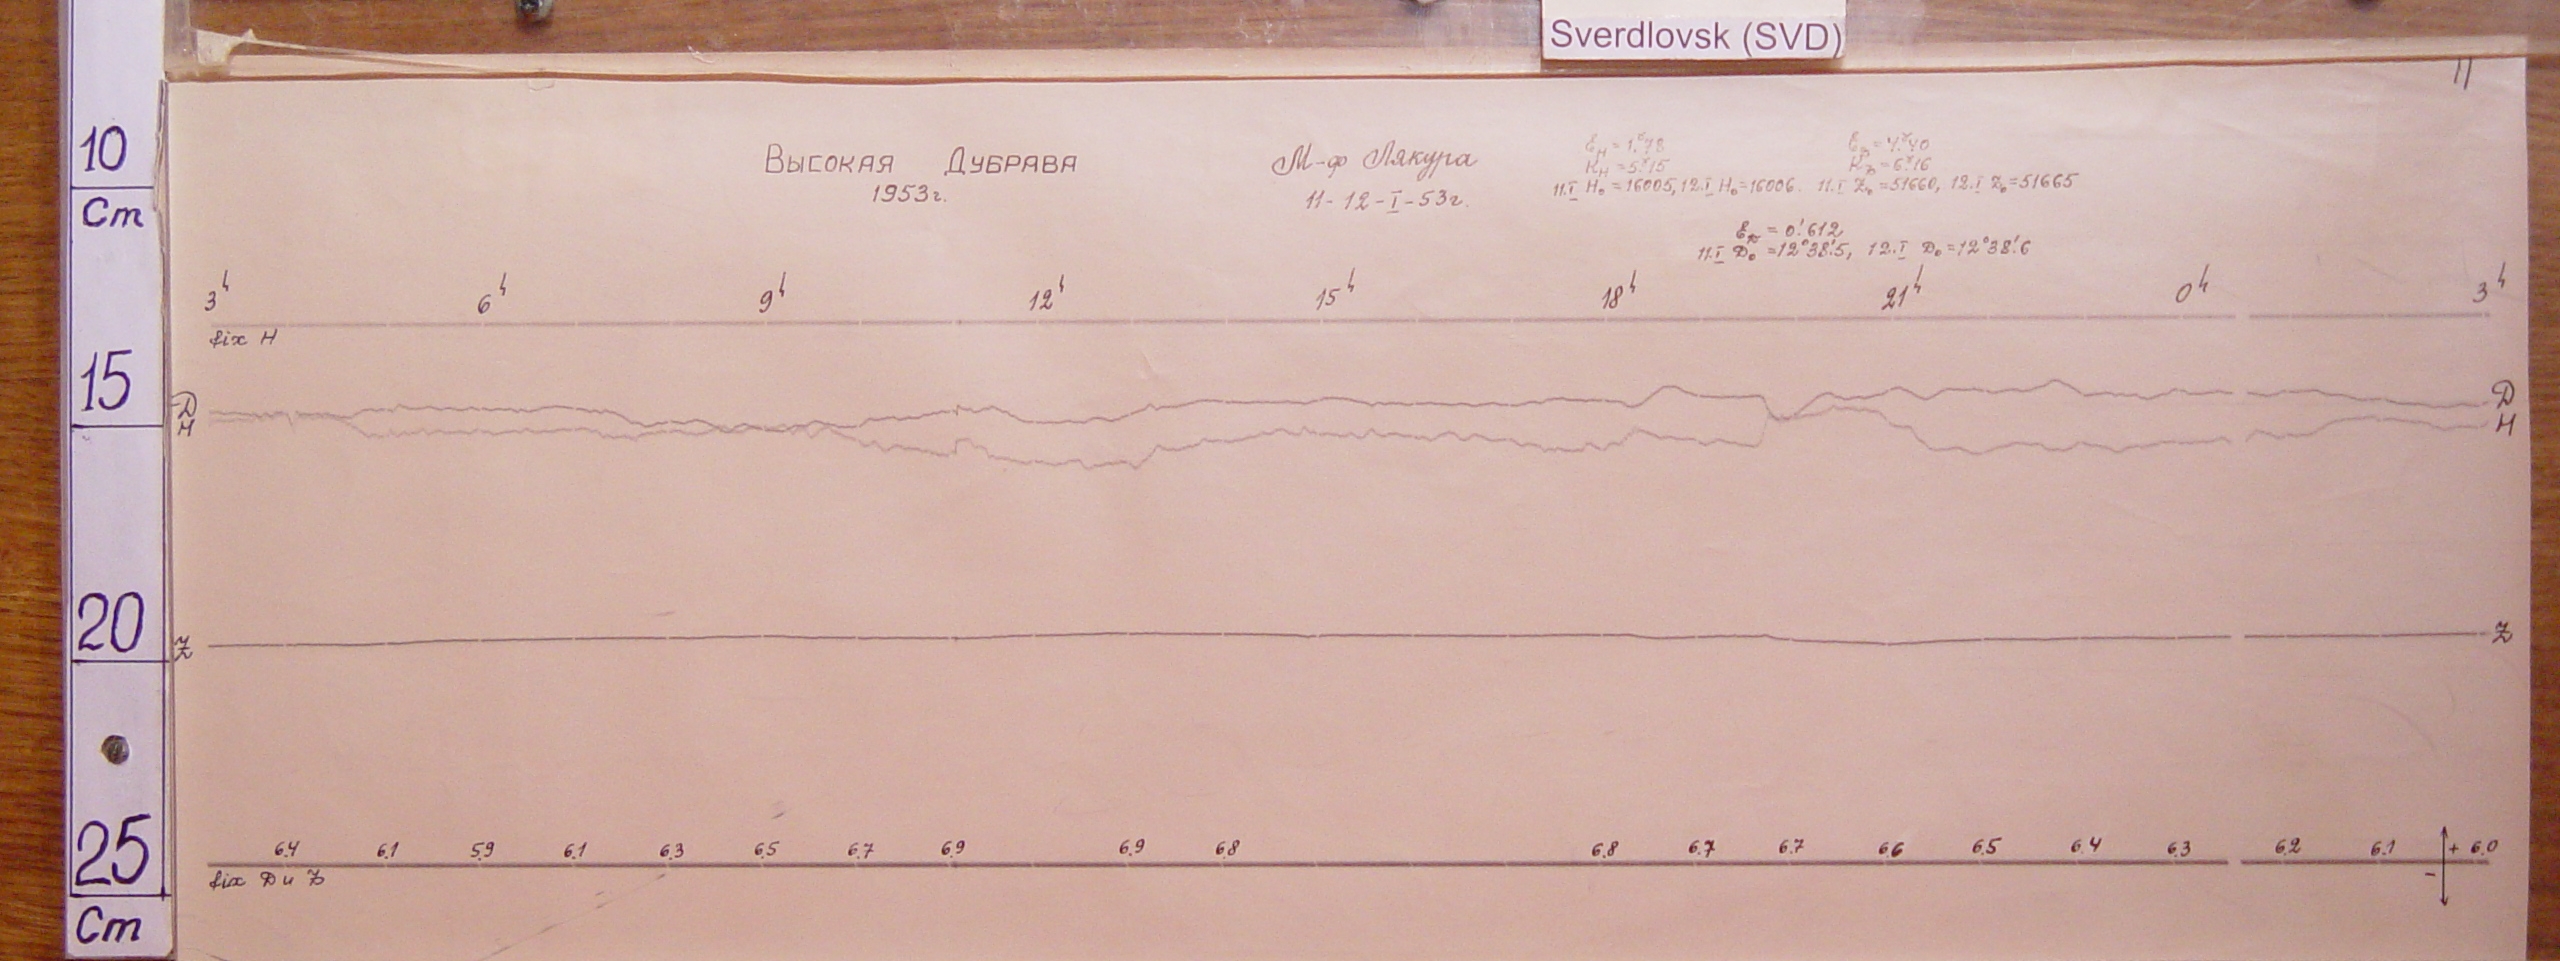 Sverdlovsk (SVD)
11
10
Cm
15
20
25
Cm
ВЫСОКАЯ ДУБРАВА
1953г.
М-ф Лякура
11-12-I-53г.
Ɛн = 1.ᵞ78
Kн = 5.ᵞ15
11.I H₀ = 16005, 12.I H₀ = 16006.
Ɛz = 4.ᵞ40
Kz = 6.ᵞ16
11.I Z₀ = 51660, 12.I Z₀ = 51665
ƐD = 0.'612
11.I D₀ = 12°38.'5, 12.I D₀ = 12°38.'6
3ʰ 6ʰ 9ʰ 12ʰ 15ʰ 18ʰ 21ʰ 0ʰ 3ʰ
fix H
D D
H H
Z Z
6.4 6.1 5.9 6.1 6.3 6.5 6.7 6.9 6.9 6.8 6.8 6.7 6.7 6.6 6.5 6.4 6.3 6.2 6.1 + 6.0
-
fix D и Z